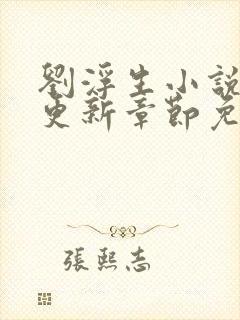 劉浮生小說
更新章節免
張熙志